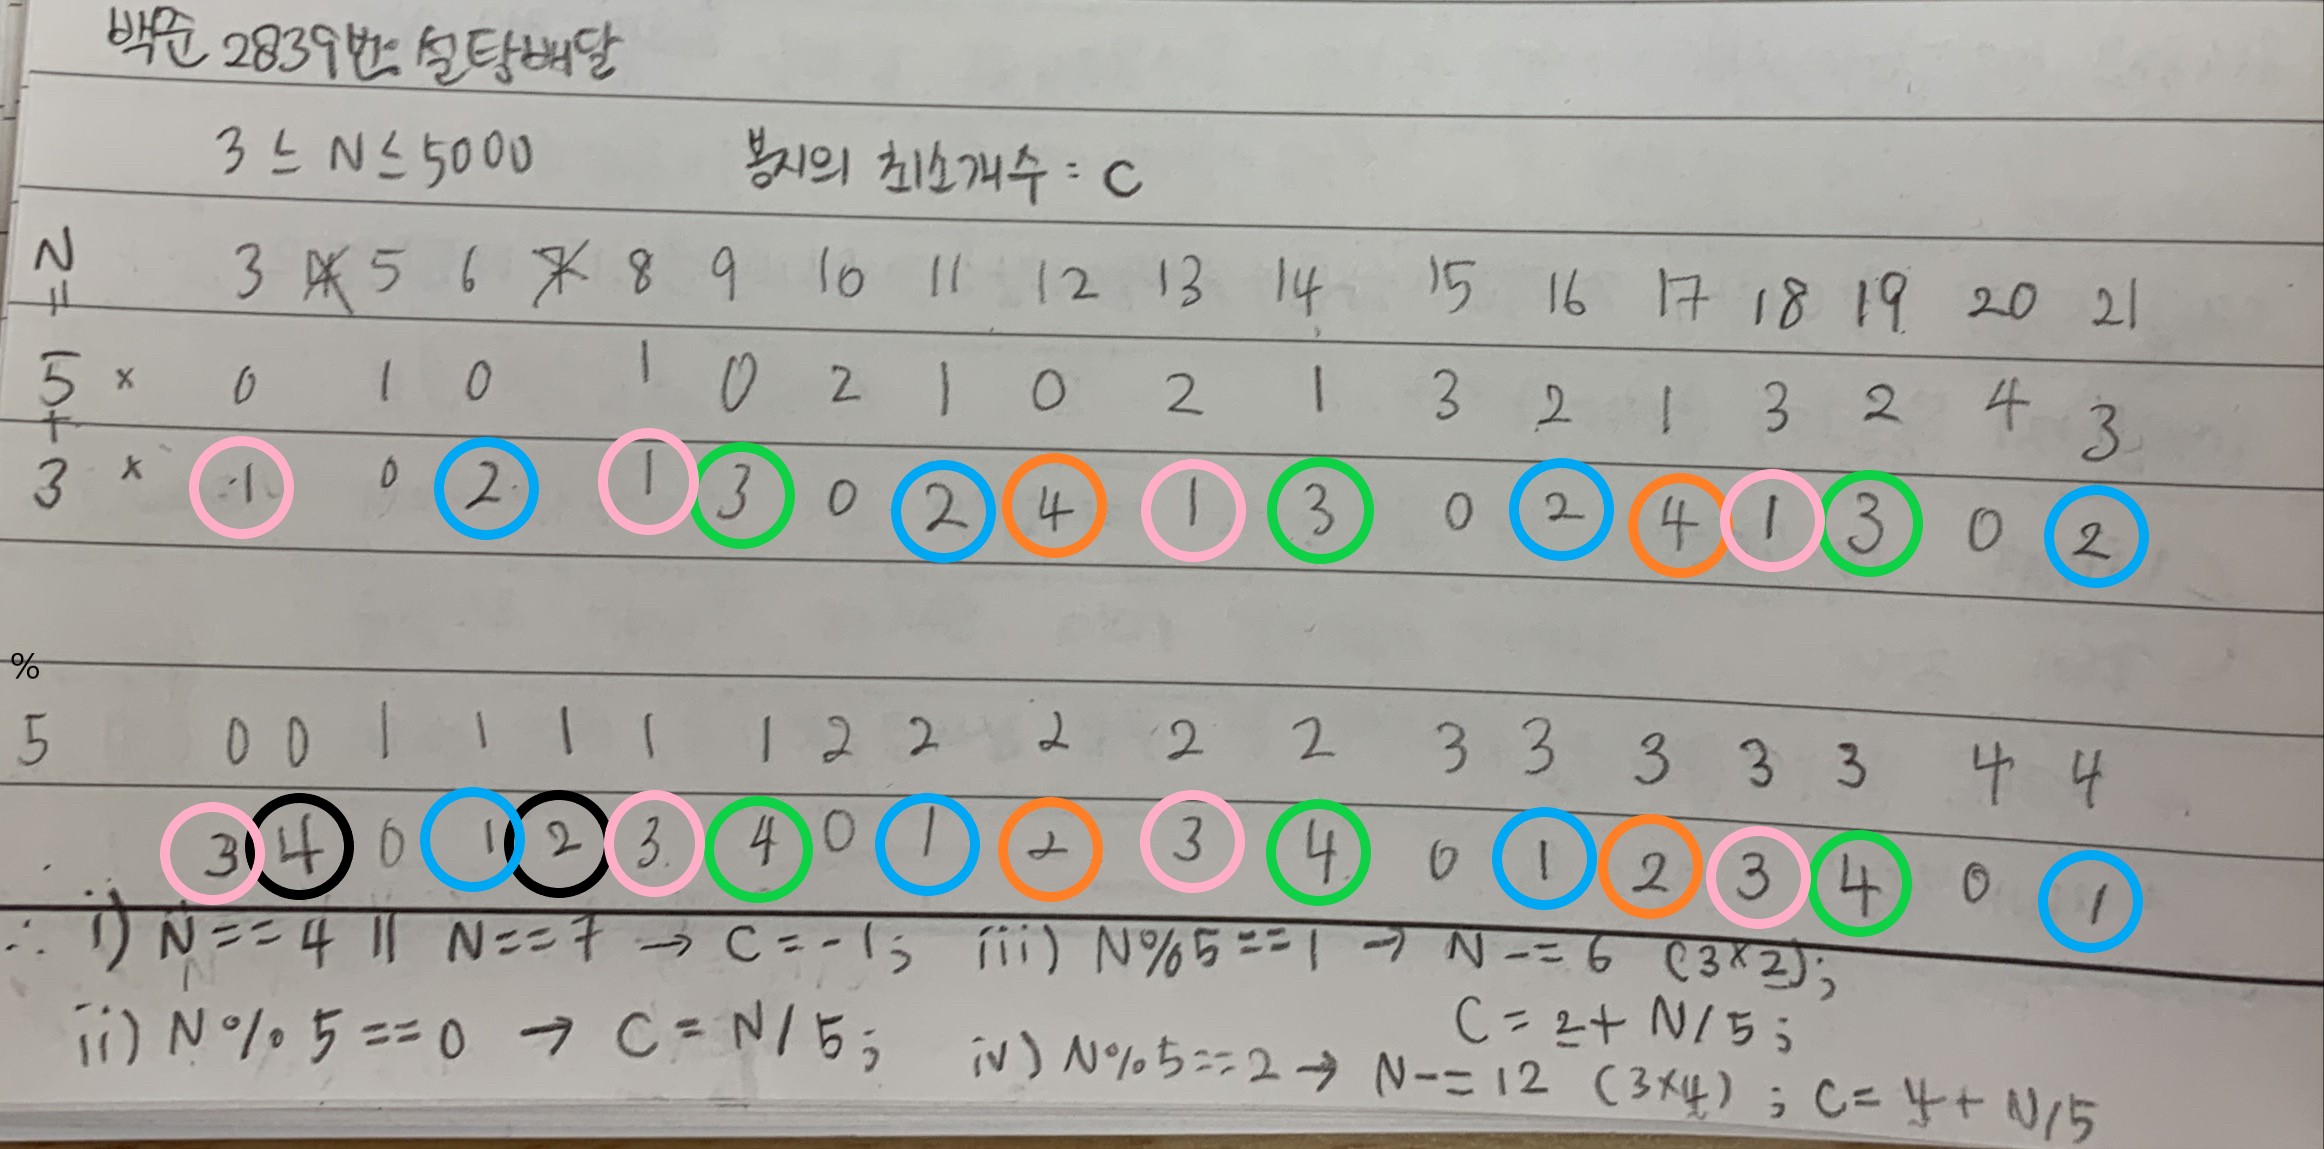 백준 2839번: 설탕배달
3 ≤ N ≤ 5000 봉지의 최소개수 : C
N 3 4 5 6 7 8 9 10 11 12 13 14 15 16 17 18 19 20 21
=
5 × 0 1 0 1 0 2 1 0 2 1 3 2 1 3 2 4 3
+
3 × 1 0 2 1 3 0 2 4 1 3 0 2 4 1 3 0 2
%
5 0 0 1 1 1 1 1 2 2 2 2 2 3 3 3 3 3 4 4
3 4 0 1 2 3 4 0 1 2 3 4 0 1 2 3 4 0 1
∴ i) N == 4 || N == 7 → C = -1; iii) N%5 == 1 → N -= 6 (3×2);
C = 2 + N/5;
ii) N % 5 == 0 → C = N/5; iv) N%5 == 2 → N -= 12 (3×4) ; C = 4 + N/5